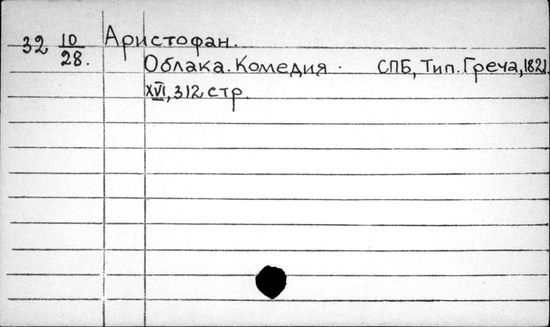 32 10/28. Аристофан.
Облака. Комедия. СПБ, Тип. Греча, 1821.
XVI, 312 стр.